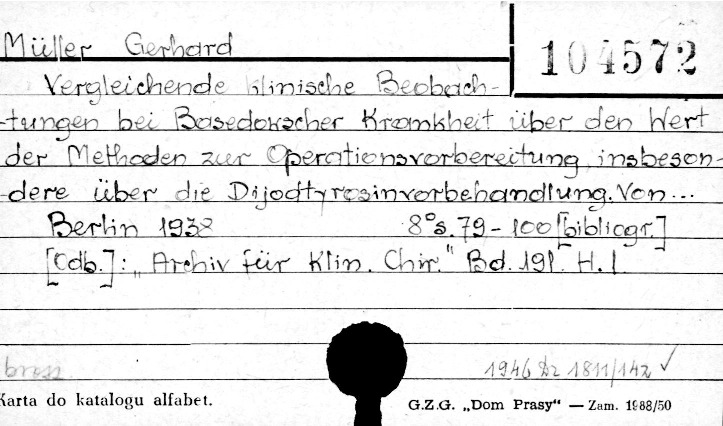 Müller Gerhard
104572
Vergleichende klinische Beobach-
-tungen bei Basedowscher Krankheit über den Wert
der Methoden zur Operationsvorbereitung, insbeson-
-dere über die Dijodtyrosinvorbehandlung. Von...
Berlin 1938 8° s. 79-100 [bibliogr.]
[Odb.]: „Archiv für Klin. Chir." Bd. 191. H. 1
brosz.
1946 Dz 1811/142 ✓
Karta do katalogu alfabet.
G.Z.G. „Dom Prasy" — Zam. 1988/50